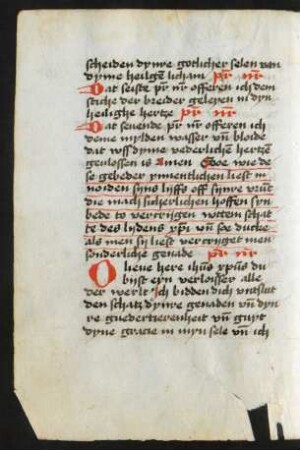 scheiden dynre gotlicher selen van
dyme heilgen licham pr nr
Dat seiste pr nr offeren ich dem
steiche der breider gelegen in dyn
heilighe hertze pr nr
Dat seuende pr nr offeren ich
deme mylden wasser vn bloide
dat vyss dyme vederlichen hertzen
gevlossen is Amen
se gebeder ynnentlichen liest in
noiden syns lyffs off synre
die mach sicherlichen hoffen syn
bede to vercrijgen wtten schat
te des lydens xpi vn soe ducke
als men sy liest vercrijget men
sonderliche genade pr nr
O lieue here ihus xpus du
bijst eyn verloisser alle
der werlt Ich bidden dich untsluit
den schatz dynre genaden vn dyn
re guedertierenheit vn
dyne gracie in myn sele vn ich